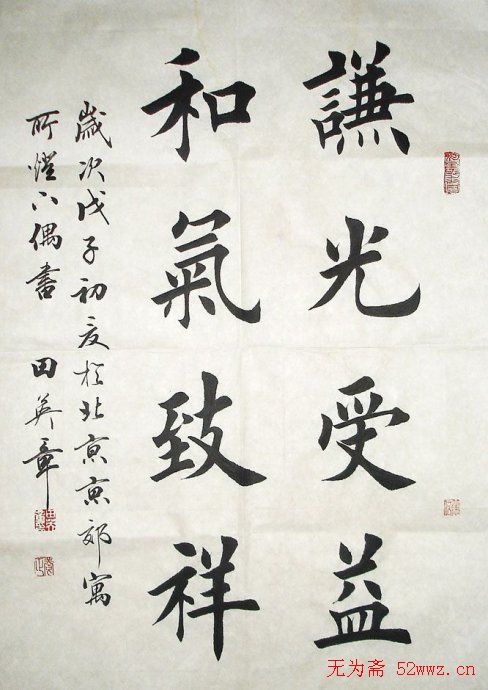 謙光受益
和氣致祥
歲次戊子初夏於北京京郊寓
所燈下偶書 田英章
无为斋 52wwz.cn